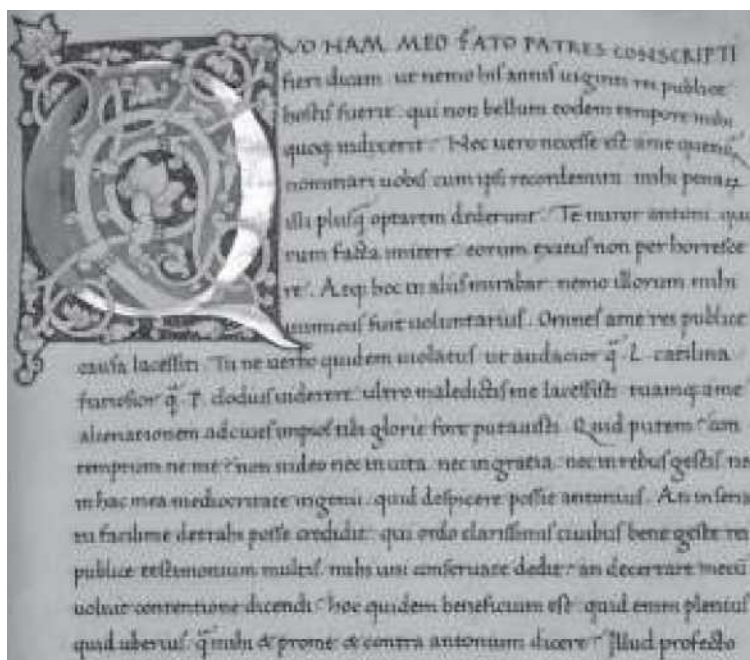 QVO NAM MEO FATO PATRES CONSCRIPTI
fieri dicam ut nemo his annis uiginti rei publice
hostis fuerit qui non bellum eodem tempore mihi
quoq indixerit Nec uero necesse est a me quenq̃
nominari uobis cum ipsi recordemini mihi penarũ
illi plusq optarem dederunt Te miror antoni quo
rum facta imitere eorum exitus non per horresce
re. Atq hoc in aliis mirabar nemo illorum mihi
inimicus fuit uoluntarius. Omnes a me rei publice
causa lacessiti. Tu ne uerbo quidem uiolatus ut audacior q̃ L. catilina
furiosior q̃ P. clodius uiderere ultro maledictis me lacessisti tuamq a me
alienationem ad ciues impios tibi glorie fore putauisti. Quid putem? con
temptum ne me? non uideo nec in uita nec in gratia nec in rebus gestis nec
in hac mea mediocritate ingenii quid despicere possit antonius. An in sena
tu facilime detrahi posse credidit qui ordo clarissimis ciuibus bene geste rei
publice testimonium multis mihi uni conseruate dedit? an decertare mecũ
uoluit contentione dicendi? hoc quidem beneficium est quid enim plenius
quid uberius q̃ mihi & pro me & contra antonium dicere? Illud profecto